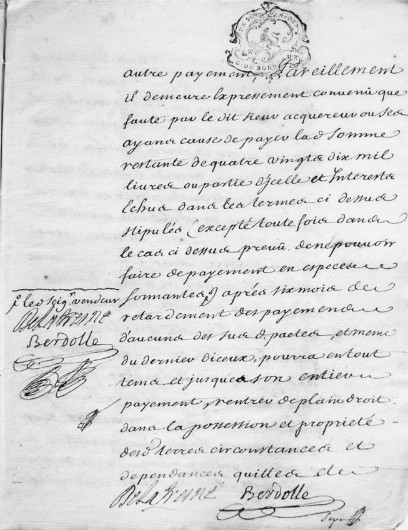 autre payement, Pareillement
il demeure Expressement convenû que
faute par le dit sieur acquereur ou ses
ayans cause de payer la d. somme
restante de quatre vingts dix mil
livres ou partie d'jcelle et Interests
Echus dans les termes ci dessus
stipulés (excepté toute fois dans
le cas ci dessus prevû de ne pouvoir
faire de payement en especes
sonnantes) après six mois de
retardement des payemens
d'aucuns des sus d. pactes, et meme
du dernier d'iceux, pourra en tout
tems et jusques a son entier
payement, rentrer de plain droit
dans la possession et proprieté
des d. terres circonstances et
dependances quittes de
le d. seigr. vendeur
De La Fresne
Berdolle
De La Fresne Berdolle